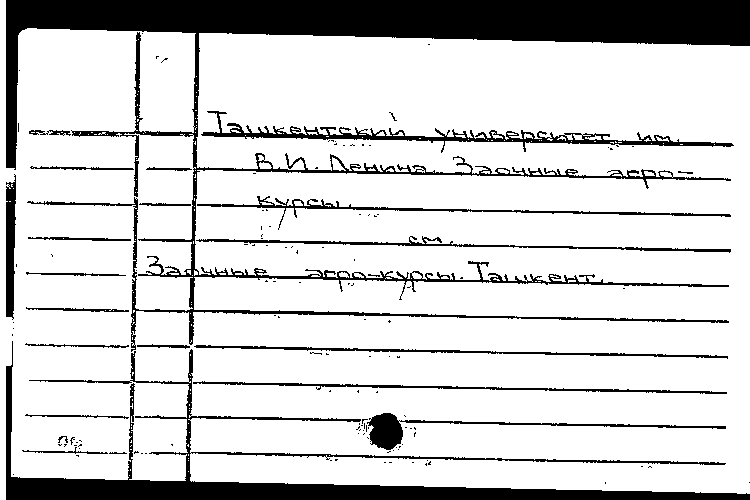 Ташкентский университет им.
В.И. Ленина. Заочные агро-
курсы.
см.
Заочные агро-курсы. Ташкент.